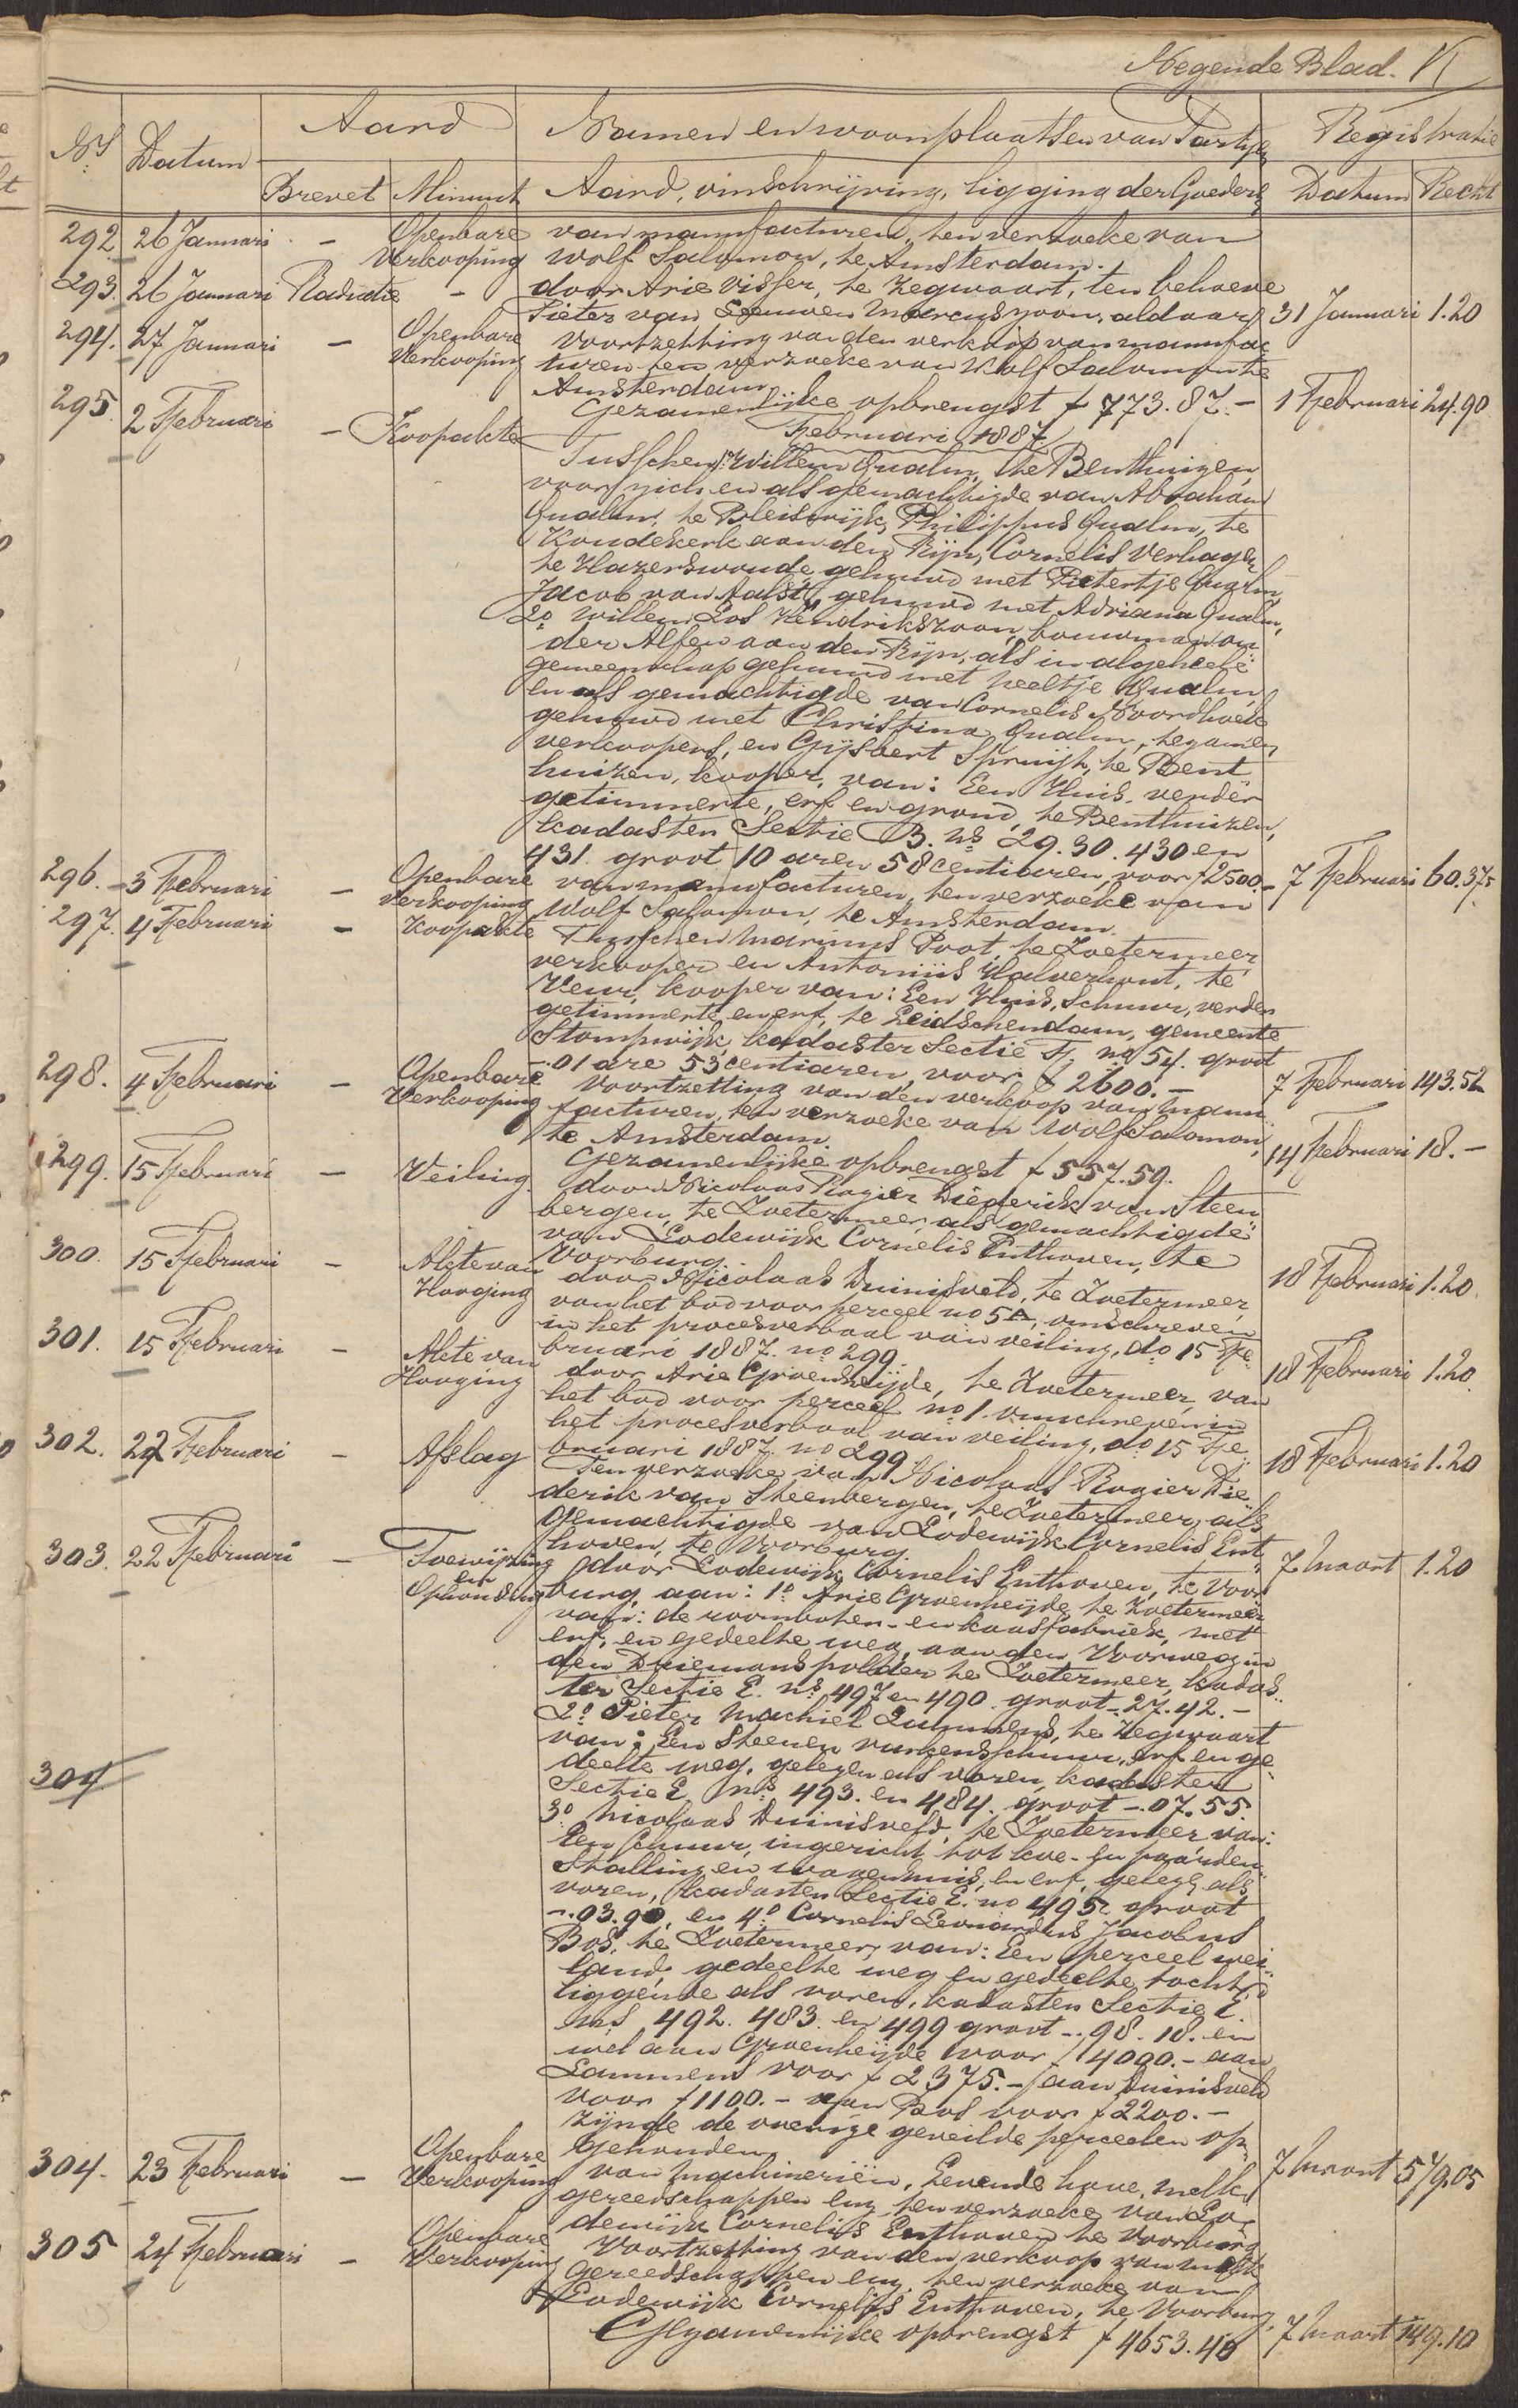 Negende Blad.
Aard Namen en woonplaatsen van Partijen Registratie
Ns Datum
Brevet Minuut Aard, omschrijving, ligging der Goederen Datum Recht
292 26 Januari - Openbare van manufacturen, ten verzoeke van
Verkooping Wolf Salomon, te Amsterdam.
293. 26 Januari Radiatie - door Arie Visser, te Zegwaart, ten behoeve
Pieter van Leeuwen Marcuszoon, aldaar 31 Januari 1.20
294. 27 Januari - Openbare Voortzetting van den verkoop van manufac
Verkooping turen ten verzoeke van Wolf Salomon te
Amsterdam
Gezamenlijke opbrengst f 773.87.- 1 Februari 24.90
Februari 1887
295. 2 Februari - Koopakte Tusschen 1o Willem Qualm, te Benthuizen,
voor zich en als gemachtigde van Abraham
Qualm, te Bleiswijk, Philippus Qualm, te
Koudekerk aan den Rijn, Cornelis Verhagen
te Hazerswoude, gehuwd met Pietertje Qualm,
Jacob van Aalst, gehuwd met Adriana Qualm,
2o Willem Los Hendrikszoon, bouwman on
der Alfen aan den Rijn, als in algeheele
gemeenschap gehuwd met Neeltje Qualm,
en als gemachtigde van Cornelis Noordhoek
gehuwd met Christina Qualm, tezamen
verkoopers, en Gijsbert Spruijt, te Bent
huizen, kooper, van: Een Huis, verder
getimmerte, erf en grond, te Benthuizen,
kadaster Sectie B. ns 29. 30. 430 en
431. groot 10 aren 58 centiaren, voor f 2500.- 7 Februari 60.375
296. 3 Februari - Openbare van manufacturen, ten verzoeke van
Verkooping Wolf Salomon, te Amsterdam.
297. 4 Februari - Koopakte Tusschen Marinus Poot, te Zoetermeer
verkooper en Antonius Halverhout, te
Veur, kooper van: Een Huis, Schuur, verder
getimmerte en erf, te Leidschendam, gemeente
Stompwijk, kadaster Sectie F. no 54. groot
-.01 are 53 centiaren, voor f 2600.- 7 Februari 143.52
298. 4 Februari - Openbare Voortzetting van den verkoop van manu
Verkooping facturen, ten verzoeke van Wolf Salomon,
te Amsterdam.
Gezamenlijke opbrengst f 557.59. 14 Februari 18.-
299. 15 Februari - Veiling. door Nicolaas Rogier Diederik van Steen
bergen, te Zoetermeer, als gemachtigde
van Lodewijk Cornelis Enthoven, te
Voorburg. 18 Februari 1.20.
300. 15 Februari - Akte van door Nicolaas Duinisveld, te Zoetermeer,
Hooging van het bod voor perceel no 5A, omschreven
in het procesverbaal van veiling, do 15 Fe
bruari 1887. no 299. 18 Februari 1.20.
301. 15 Februari - Akte van door Arie Groenheijde, te Zoetermeer, van
Hooging het bod voor perceel no 1. omschreven in
het procesverbaal van veiling, do 15 Fe
bruari 1887. no 299. 18 Februari 1.20
302. 22 Februari - Afslag Ten verzoeke van Nicolaas Rogier Die
derik van Steenbergen, te Zoetermeer, als
gemachtigde van Lodewijk Cornelis Ent
hoven, te Voorburg 7 Maart 1.20
303. 22 Februari - Toewijzing door Lodewijk Cornelis Enthoven, te Voor
en
Ophouding burg, aan: 1o Arie Groenheijde, te Zoetermeer
van: de roomboter- en kaasfabriek, met
erf, en gedeelte weg, aan den Voorweg in
den Driemanspolder te Zoetermeer, kadas
ter Sectie E. ns 497 en 490. groot -.27.42.-
2o Pieter Machiel Lammens, te Zegwaart
van: Een Steenen varkensschuur, erf en ge
deelte weg, gelegen als voren, kadaster
Sectie E. ns 493. en 484. groot -.07.55.
304
3o Nicolaas Duinisveld, te Zoetermeer, van:
Een Schuur, ingericht tot koe- en paarden
stalling en wagenhuis, en erf, gelegen als
voren, kadaster Sectie E. no 495. groot
-.03.90, en 4o Cornelis Leonardus Jacobus
Bos, te Zoetermeer, van: Een perceel wei
land, gedeelte weg en gedeelte tocht,
liggende als voren, kadaster Sectie E.
ns 492. 483. en 499 groot -.98.18. en
wel aan Groenheijde voor f 4000.- aan
Lammens voor f 2375.- aan Duinisveld
voor f 1100.- aan Bos voor f 2200.-
zijnde de overige geveilde perceelen op
gehouden. 7 Maart 579.05
304. 23 Februari - Openbare van Machineriën, Levende have, melk
Verkooping gereedschappen enz. ten verzoeke van Lo
dewijk Cornelis Enthoven te Voorburg
305 24 Februari - Openbare Voortzetting van den verkoop van melk
Verkooping gereedschappen enz. ten verzoeke van
Lodewijk Cornelis Enthoven, te Voorburg,
Gezamenlijke opbrengst f 4653.40 7 Maart 149.10